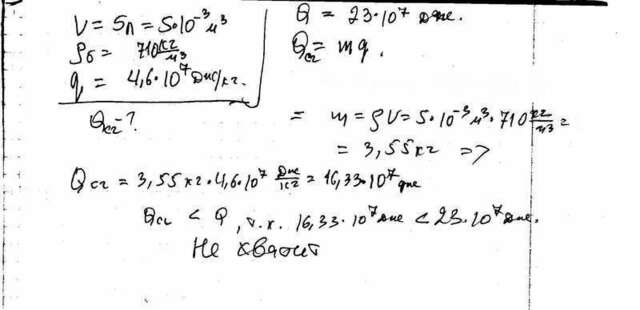 V = 5л = 5·10⁻³ м³
ρб = 710 кг/м³
q = 4,6·10⁷ Дж/кг.
Qсг - ?
Q = 23·10⁷ Дж.
Qсг = mq.
= m = ρV = 5·10⁻³ м³·710 кг/м³ =
= 3,55 кг =>
Qсг = 3,55 кг·4,6·10⁷ Дж/кг = 16,33·10⁷ Дж
Qсг < Q, т.к. 16,33·10⁷ Дж < 23·10⁷ Дж.
Не хватит